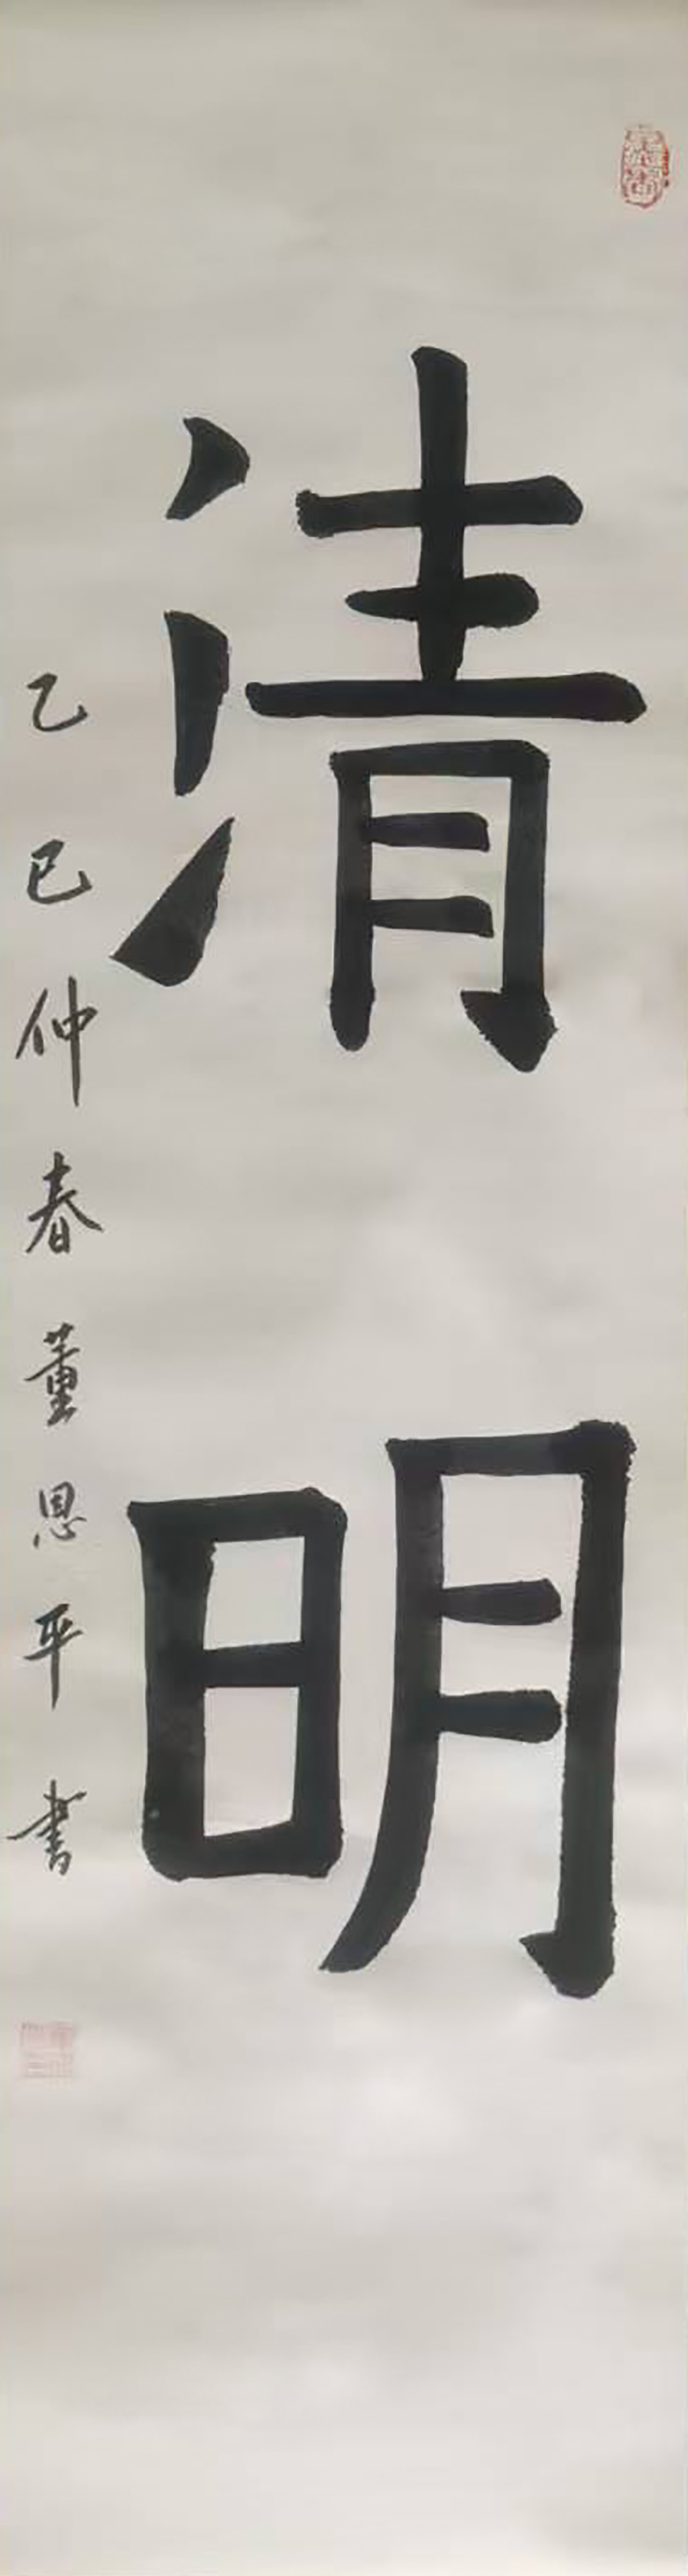 清明
乙巳仲春董恩平书